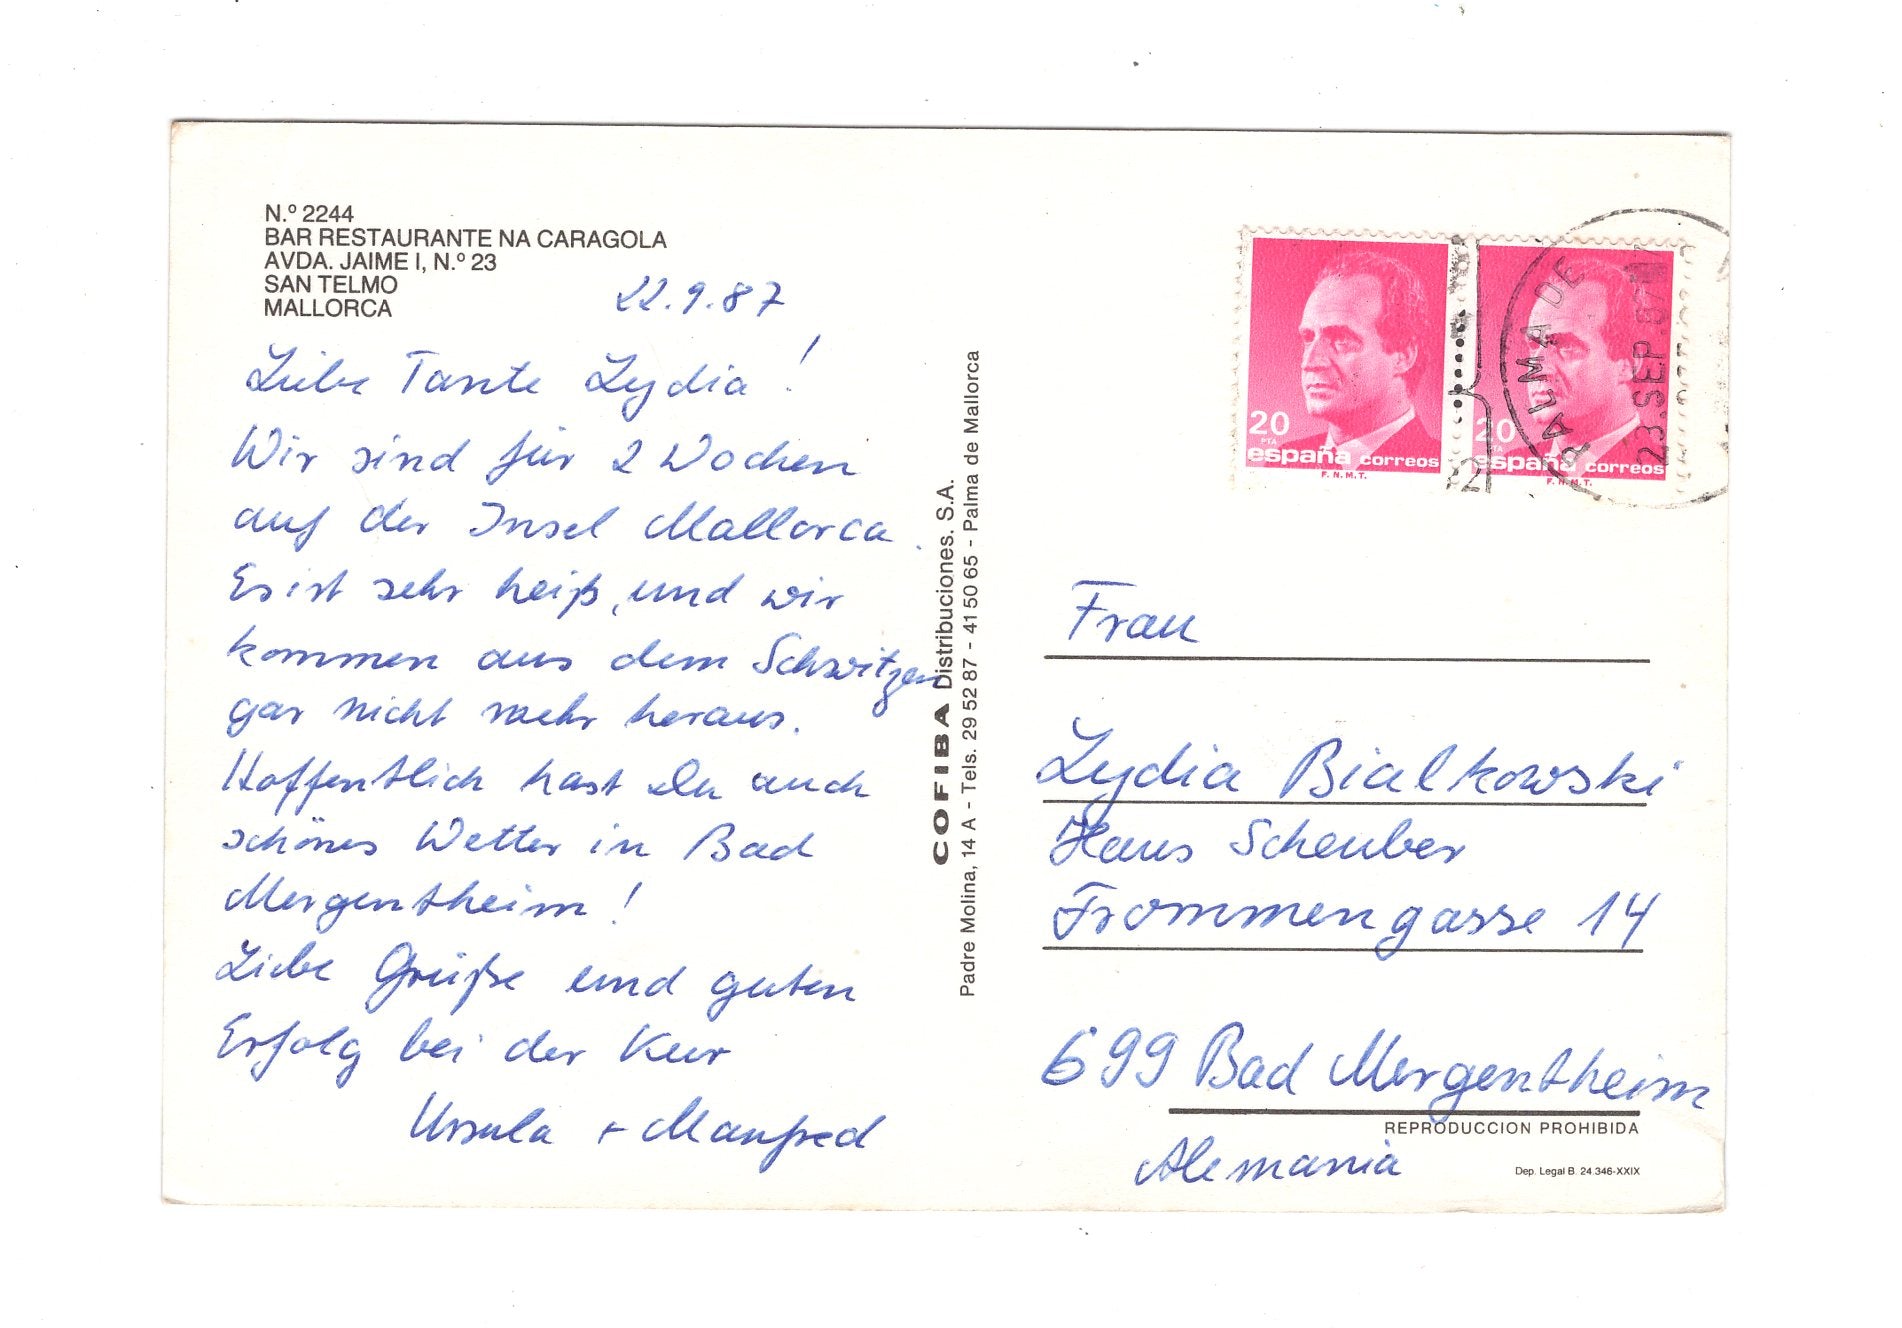 N.º 2244
BAR RESTAURANTE NA CARAGOLA
AVDA. JAIME I, N.º 23
SAN TELMO
MALLORCA
22.9.87
Liebe Tante Lydia!
Wir sind für 2 Wochen
auf der Insel Mallorca.
Es ist sehr heiß, und wir
kommen aus dem Schwitzen
gar nicht mehr heraus.
Hoffentlich hast Du auch
schönes Wetter in Bad
Mergentheim!
Liebe Grüße und guten
Erfolg bei der Kur
Ursula + Manfred
COFIBA Distribuciones. S.A.
Padre Molina, 14 A - Tels. 29 52 87 - 41 50 65 - Palma de Mallorca
20
PTA
españa correos
F.N.M.T.
20
PTA
españa correos
F.N.M.T.
PALMA DE
23.SEP.87
Frau
Lydia Bialkowski
Haus Scheuber
Frommengasse 14
699 Bad Mergentheim
REPRODUCCION PROHIBIDA
Alemania
Dep. Legal B. 24.346-XXIX